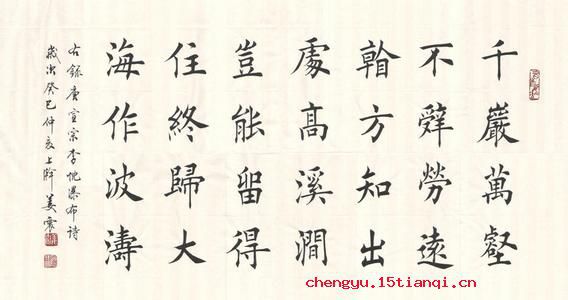 千巖萬壑
不辤勞遠
方知出
處高溪澗
豈能留得
住終歸大
海作波濤
右錄唐宣宗李忱瀑布詩
歲次癸巳仲夏上澣姜震
chengyu.15tianqi.cn